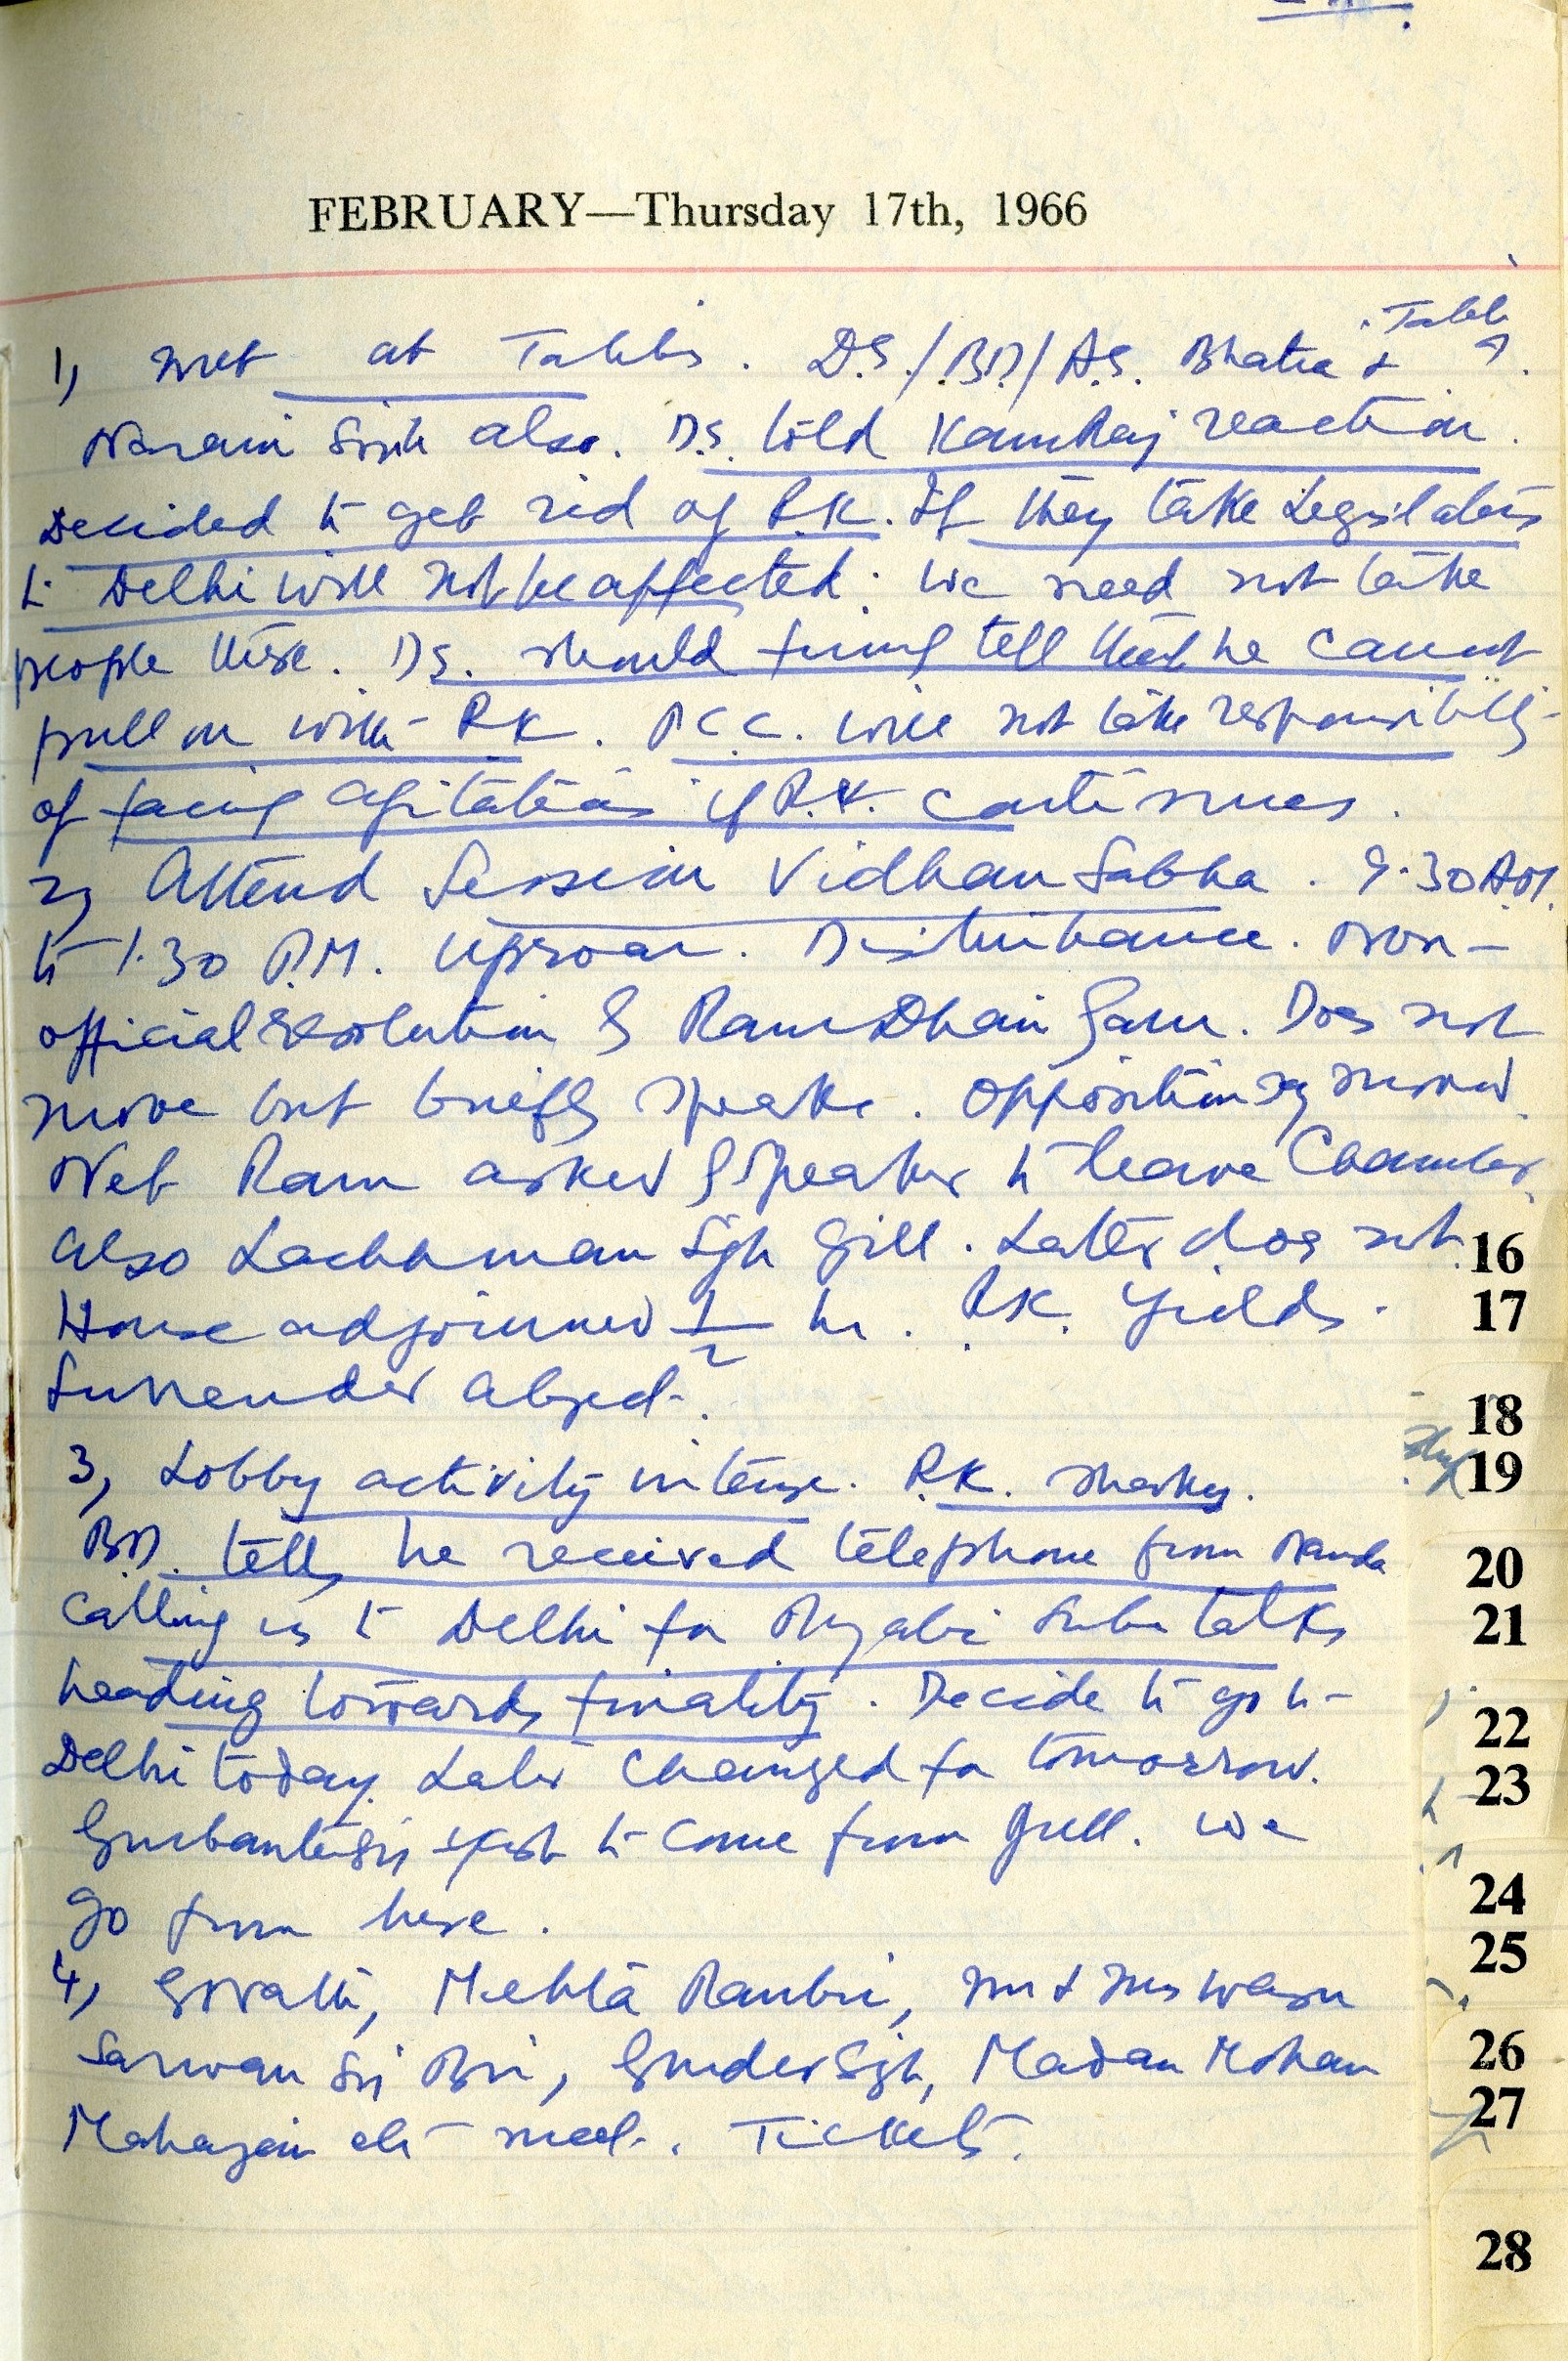 FEBRUARY—Thursday 17th, 1966
Talib
1, Met at Talib's. D.S./B.D/A.S. Bhatia &
Narain Singh also. D.S. told KamRaj reaction.
Decided to get rid of R.K. If they take Legislators
to Delhi will not be affected. We need not take
people there. DS. should firmly tell that he cannot
pull on with RK. P.C.C. will not take responsibility
of facing agitation if R.K. continues.
2, Attend Session Vidhan Sabha. 9.30 A.M.
to 1.30 P.M. Uproar. Disturbance. Non-
official resolution by Ram Dhari Gaur. Does not
move but briefly speaks. Opposition moved
Net Ram asked by Speaker to leave Chamber
Also Lachhman Sgh Gill. Later does not.
House adjourned 1/2 hr. R.K. yields.
Surrender abject.
3, Lobby activity intense. R.K. shaky.
B.D. tells he received telephone from Nanda
calling us to Delhi for Punjabi Suba talks
heading towards finality. Decide to go to
Delhi today. Later changed for tomorrow.
Gurbanta to come from Jull. We
go from here.
4, Mehta Ranbir, Mr & Mrs
Sarwan Gurder Sgh, Madan Mohan
Mahajan etc meet. Tickets.
16
17
18
19
20
21
22
23
24
25
26
27
28